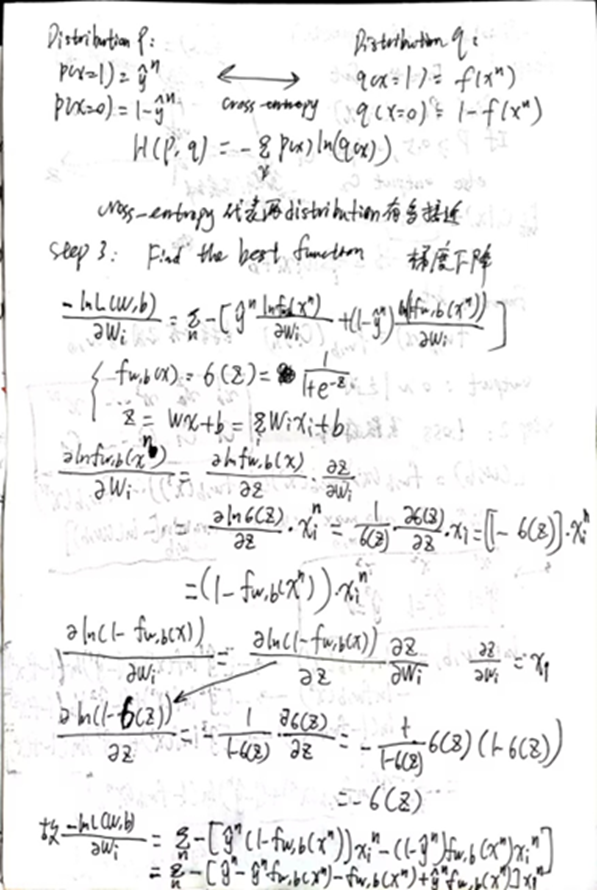 Distribution p: Distribution q:
p(x=1) = ŷⁿ ⟷ q(x=1) = f(xⁿ)
p(x=0) = 1-ŷⁿ cross-entropy q(x=0) = 1-f(xⁿ)
H(p,q) = -Σₓ p(x) ln(q(x))
cross-entropy 代表两distribution有多接近
step 3: Find the best function 梯度下降
-lnL(w,b)/∂wᵢ = Σₙ -[ŷⁿ lnf_w,b(xⁿ)/∂wᵢ + (1-ŷⁿ) ln(1-f_w,b(xⁿ))/∂wᵢ]
{ f_w,b(x) = 6(z) = 1/(1+e^-z)
z = wx+b = Σᵢ wᵢxᵢ+b
∂lnf_w,b(xⁿ)/∂wᵢ = ∂lnf_w,b(x)/∂z · ∂z/∂wᵢ
∂ln6(z)/∂z · xᵢⁿ = 1/6(z) · ∂6(z)/∂z · xᵢ = [1-6(z)]·xᵢⁿ
= (1-f_w,b(xⁿ))·xᵢⁿ
∂ln(1-f_w,b(x))/∂wᵢ = ∂ln(1-f_w,b(x))/∂z ∂z/∂wᵢ ∂z/∂wᵢ = xᵢ
∂ln(1-6(z))/∂z = - 1/(1-6(z)) · ∂6(z)/∂z = - 1/(1-6(z)) 6(z)(1-6(z))
= -6(z)
故 -lnL(w,b)/∂wᵢ = Σₙ -[ŷⁿ(1-f_w,b(xⁿ))xᵢⁿ - (1-ŷⁿ)f_w,b(xⁿ)xᵢⁿ]
= Σₙ -[ŷⁿ-ŷⁿf_w,b(xⁿ)-f_w,b(xⁿ)+ŷⁿf_w,b(xⁿ)]xᵢⁿ